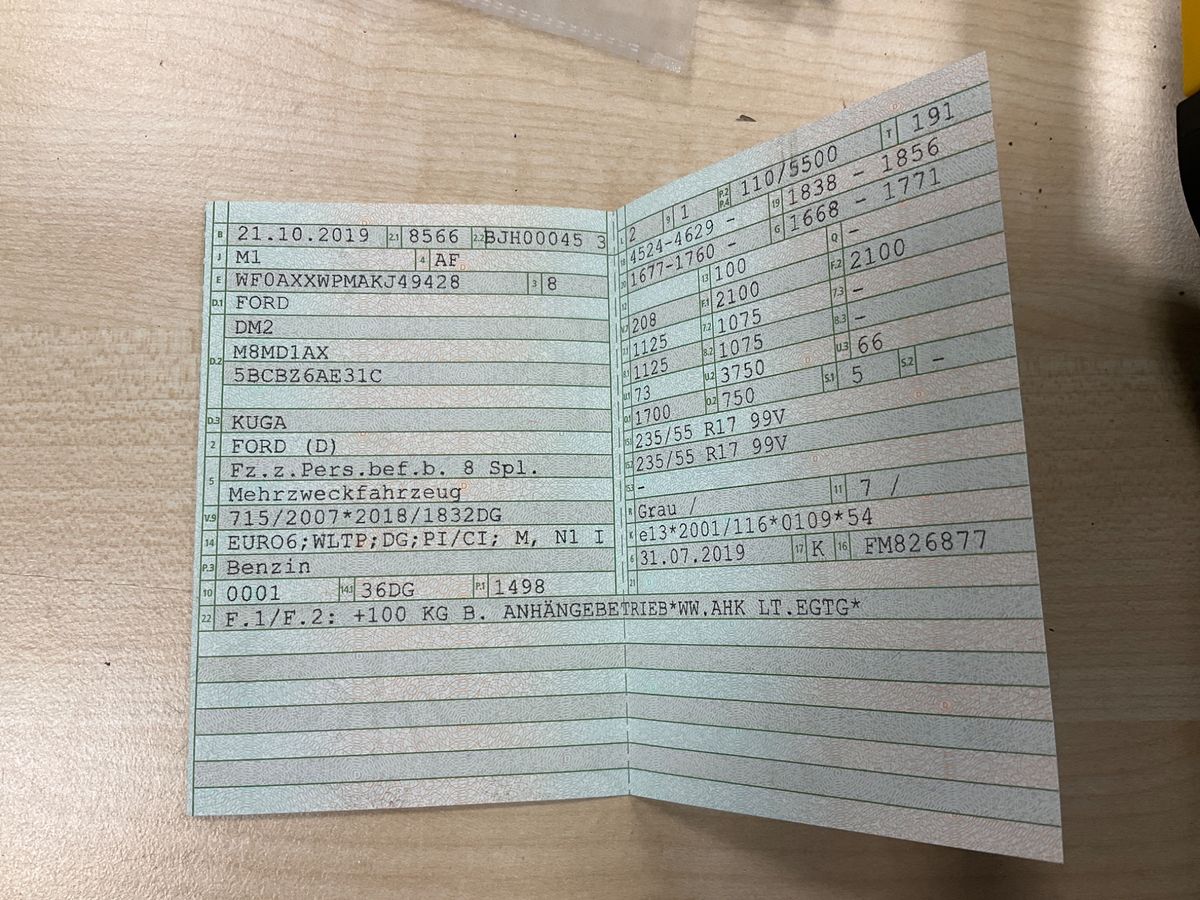 B 21.10.2019 2.1 8566 2.2 BJH00045 3
J M1 4 AF
E WF0AXXWPMAKJ49428 3 8
D.1 FORD
DM2
D.2 M8MD1AX
5BCBZ6AE31C
D.3 KUGA
2 FORD (D)
5 Fz.z.Pers.bef.b. 8 Spl.
Mehrzweckfahrzeug
V.9 715/2007*2018/1832DG
14 EURO6;WLTP;DG;PI/CI; M, N1 I
P.3 Benzin
10 0001 14.1 36DG P.1 1498
22 F.1/F.2: +100 KG B. ANHÄNGEBETRIEB*WW.AHK LT.EGTG*
L 2 9 1 P.2 P.4 110/5500 T 191
18 4524-4629 - 19 1838 - 1856
20 1677-1760 - G 1668 - 1771
12 13 100 Q -
V.7 208 F.1 2100 F.2 2100
7.1 1125 7.2 1075 7.3 -
8.1 1125 8.2 1075 8.3 -
U.1 73 U.2 3750 U.3 66
O.1 1700 O.2 750 S.1 5 S.2 -
15.1 235/55 R17 99V
15.2 235/55 R17 99V
15.3 -
R Grau / 11 7 /
K e13*2001/116*0109*54
6 31.07.2019 17 K 16 FM826877
21